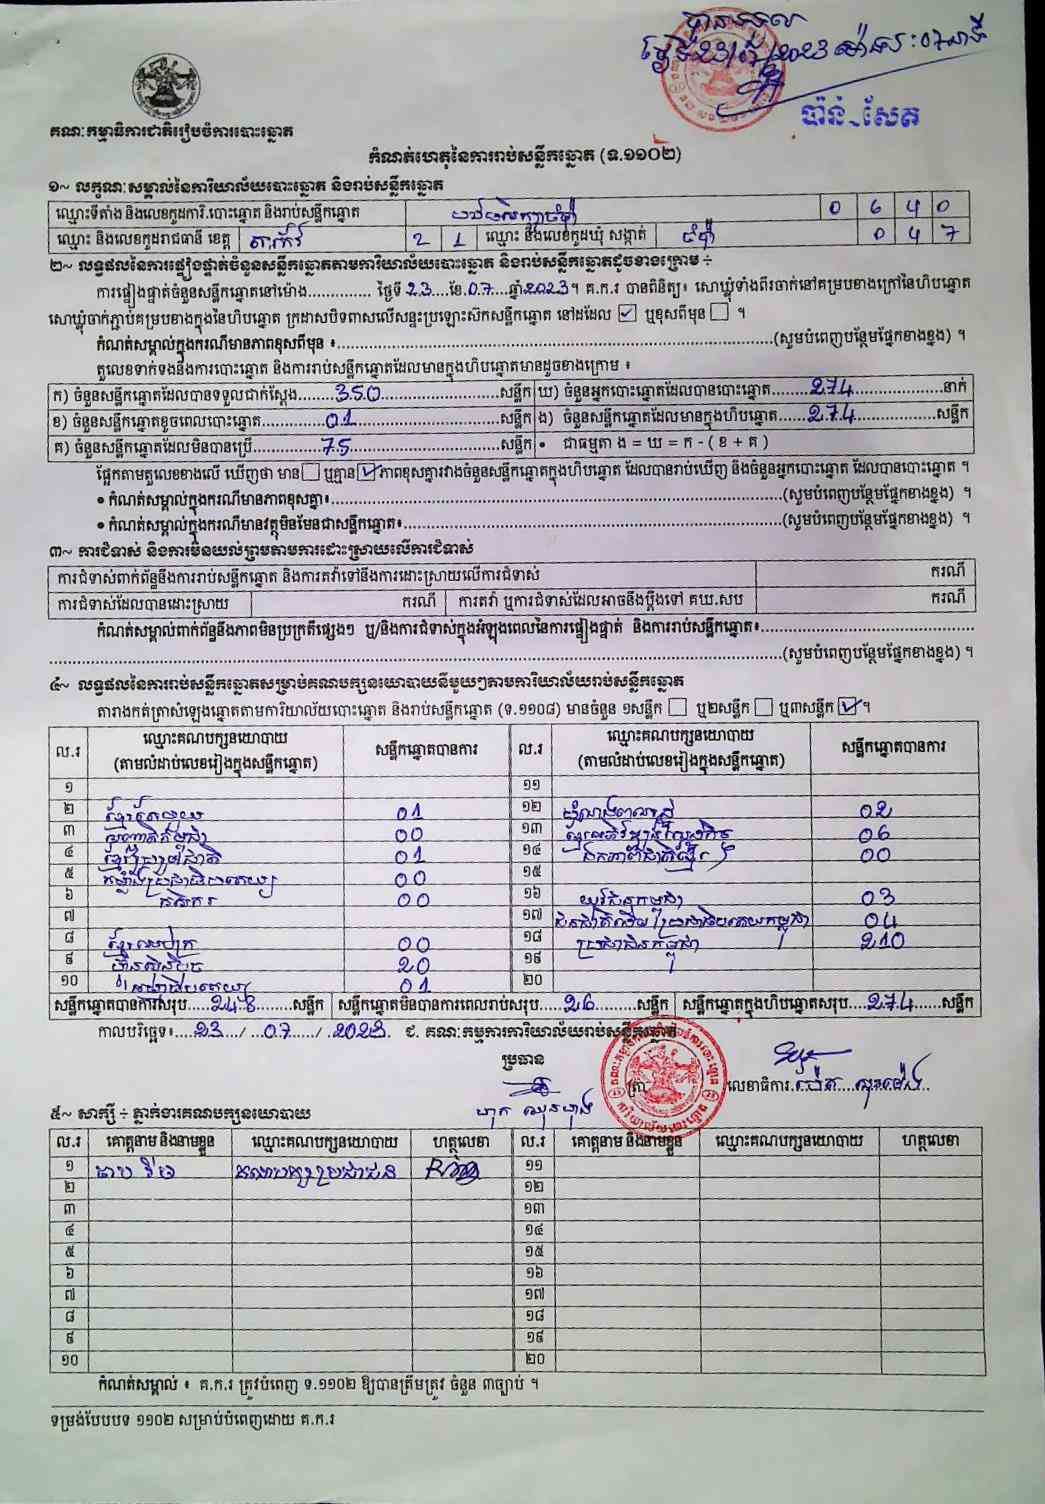 បានទទួល
ថ្ងៃទី23/07/2023
ប៉ាន់ សែត
គណៈកម្មាធិការជាតិរៀបចំការបោះឆ្នោត
កំណត់ហេតុនៃការរាប់សន្លឹកឆ្នោត (ទ.១១០២)
១~ លក្ខណៈសម្គាល់នៃការិយាល័យបោះឆ្នោត និងរាប់សន្លឹកឆ្នោត
ឈ្មោះទីតាំង និងលេខកូដការិ.បោះឆ្នោត និងរាប់សន្លឹកឆ្នោត 0 6 4 0
ឈ្មោះ និងលេខកូដរាជធានី ខេត្ត តាកែវ 2 1 ឈ្មោះ និងលេខកូដឃុំ សង្កាត់ ចំប៉ា 0 4 7
២~ លទ្ធផលនៃការផ្ទៀងផ្ទាត់ចំនួនសន្លឹកឆ្នោតតាមការិយាល័យបោះឆ្នោត និងរាប់សន្លឹកឆ្នោតដូចខាងក្រោម ÷
ការផ្ទៀងផ្ទាត់ចំនួនសន្លឹកឆ្នោតនៅម៉ោង.............. ថ្ងៃទី 23....ខែ.07....ឆ្នាំ2023។ គ.ក.រ បានពិនិត្យ៖ សោឃ្លុំទាំងពីរចាក់នៅគម្របខាងក្រៅនៃហិបឆ្នោត
សោឃ្លុំចាក់ភ្ជាប់គម្របខាងក្នុងនៃហិបឆ្នោត ក្រដាសបិទពាសលើសន្ទះប្រឡោះសិកសន្លឹកឆ្នោត នៅដដែល ☑ ឬខុសពីមុន ☐ ។
កំណត់សម្គាល់ក្នុងករណីមានភាពខុសពីមុន ៖..............(សូមបំពេញបន្ថែមផ្នែកខាងខ្នង) ។
តួលេខទាក់ទងនឹងការបោះឆ្នោត និងការរាប់សន្លឹកឆ្នោតដែលមានក្នុងហិបឆ្នោតមានដូចខាងក្រោម ៖
ក) ចំនួនសន្លឹកឆ្នោតដែលបានទទួលជាក់ស្តែង......350......សន្លឹក ឃ) ចំនួនអ្នកបោះឆ្នោតដែលបានបោះឆ្នោត......274......នាក់
ខ) ចំនួនសន្លឹកឆ្នោតខូចពេលបោះឆ្នោត......01......សន្លឹក ង) ចំនួនសន្លឹកឆ្នោតដែលមានក្នុងហិបឆ្នោត......274......សន្លឹក
គ) ចំនួនសន្លឹកឆ្នោតដែលមិនបានប្រើ......75......សន្លឹក • ជាធម្មតា ង = ឃ = ក - ( ខ + គ )
ផ្អែកតាមតួលេខខាងលើ ឃើញថា មាន ☐ ឬគ្មាន ☑ ភាពខុសគ្នារវាងចំនួនសន្លឹកឆ្នោតក្នុងហិបឆ្នោត ដែលបានរាប់ឃើញ និងចំនួនអ្នកបោះឆ្នោត ដែលបានបោះឆ្នោត ។
• កំណត់សម្គាល់ក្នុងករណីមានភាពខុសគ្នា៖..............(សូមបំពេញបន្ថែមផ្នែកខាងខ្នង) ។
• កំណត់សម្គាល់ក្នុងករណីមានវត្ថុមិនមែនជាសន្លឹកឆ្នោត៖..............(សូមបំពេញបន្ថែមផ្នែកខាងខ្នង) ។
៣~ ការជំទាស់ និងការមិនយល់ព្រមតាមការដោះស្រាយលើការជំទាស់
ការជំទាស់ពាក់ព័ន្ធនឹងការរាប់សន្លឹកឆ្នោត និងការតវ៉ាទៅនឹងការដោះស្រាយលើការជំទាស់ ករណី
ការជំទាស់ដែលបានដោះស្រាយ ករណី ការតវ៉ា ឬការជំទាស់ដែលអាចនឹងប្តឹងទៅ គឃ.សប ករណី
កំណត់សម្គាល់ពាក់ព័ន្ធនឹងភាពមិនប្រក្រតីផ្សេងៗ ឬ/និងការជំទាស់ក្នុងអំឡុងពេលនៃការផ្ទៀងផ្ទាត់ និងការរាប់សន្លឹកឆ្នោត៖..............
..............(សូមបំពេញបន្ថែមផ្នែកខាងខ្នង) ។
៤~ លទ្ធផលនៃការរាប់សន្លឹកឆ្នោតសម្រាប់គណបក្សនយោបាយនីមួយៗតាមការិយាល័យរាប់សន្លឹកឆ្នោត
តារាងកត់ត្រាសំឡេងឆ្នោតតាមការិយាល័យបោះឆ្នោត និងរាប់សន្លឹកឆ្នោត (ទ.១១០៨) មានចំនួន ១សន្លឹក ☐ ឬ២សន្លឹក ☐ ឬ៣សន្លឹក ☑។
ល.រ ឈ្មោះគណបក្សនយោបាយ (តាមលំដាប់លេខរៀងក្នុងសន្លឹកឆ្នោត) សន្លឹកឆ្នោតបានការ ល.រ ឈ្មោះគណបក្សនយោបាយ (តាមលំដាប់លេខរៀងក្នុងសន្លឹកឆ្នោត) សន្លឹកឆ្នោតបានការ
១ ១១
២ ខ្មែរតែមួយ 01 ១២ 02
៣ 00 ១៣ 06
៤ 01 ១៤ 00
៥ កម្លាំងប្រជាធិបតេយ្យ 00 ១៥
៦ កសិករ 00 ១៦ យុវជនកម្ពុជា 03
៧ ១៧ ជនជាតិដើមប្រជាធិបតេយ្យកម្ពុជា 04
៨ 00 ១៨ ប្រជាជនកម្ពុជា 210
៩ ហ៊្វុនស៊ិនប៉ិច 20 ១៩
១០ 01 ២០
សន្លឹកឆ្នោតបានការសរុប.....248.....សន្លឹក សន្លឹកឆ្នោតមិនបានការពេលរាប់សរុប.....26.....សន្លឹក សន្លឹកឆ្នោតក្នុងហិបឆ្នោតសរុប.....274.....សន្លឹក
កាលបរិច្ឆេទ៖....23.../...07...../.2023. ជ. គណៈកម្មការការិយាល័យរាប់សន្លឹកឆ្នោត
ប្រធាន
លេខាធិការ
៥~ សាក្សី ÷ ភ្នាក់ងារគណបក្សនយោបាយ
ល.រ គោត្តនាម និងនាមខ្លួន ឈ្មោះគណបក្សនយោបាយ ហត្ថលេខា ល.រ គោត្តនាម និងនាមខ្លួន ឈ្មោះគណបក្សនយោបាយ ហត្ថលេខា
១ គណបក្សប្រជាជន ១១
២ ១២
៣ ១៣
៤ ១៤
៥ ១៥
៦ ១៦
៧ ១៧
៨ ១៨
៩ ១៩
១០ ២០
កំណត់សម្គាល់ ៖ គ.ក.រ ត្រូវបំពេញ ទ.១១០២ ឱ្យបានត្រឹមត្រូវ ចំនួន ៣ច្បាប់ ។
ទម្រង់បែបបទ ១១០២ សម្រាប់បំពេញដោយ គ.ក.រ